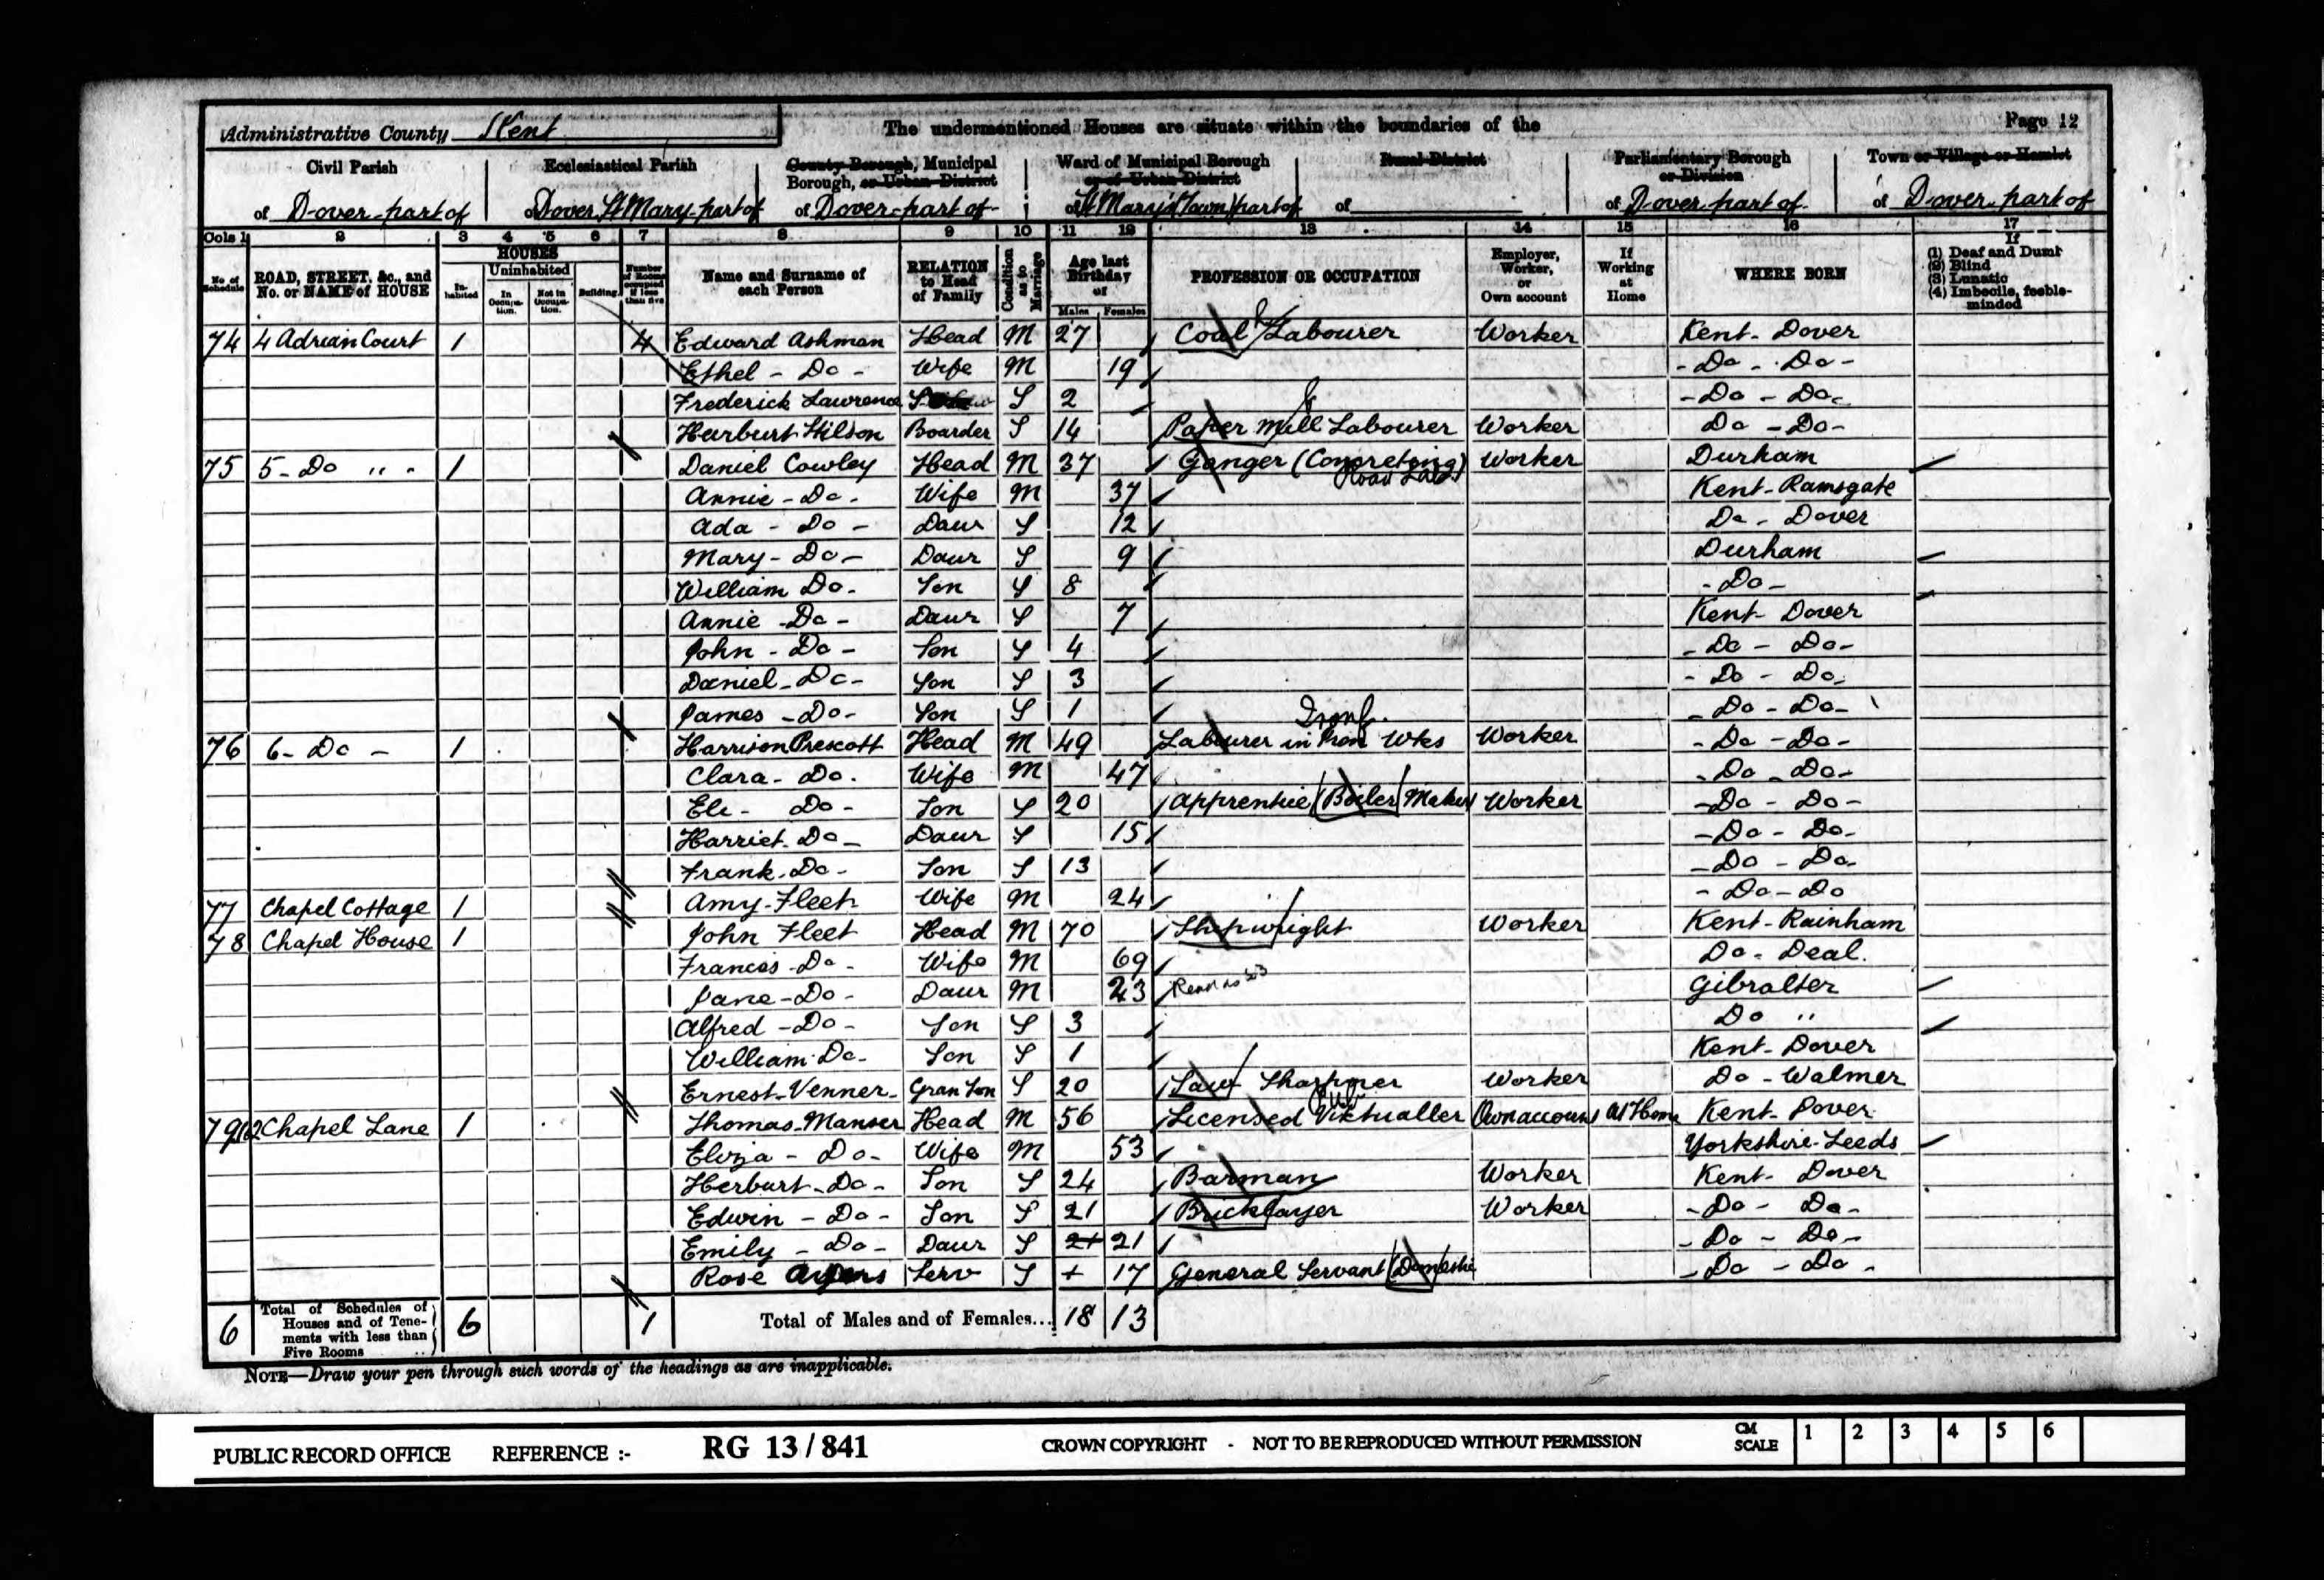 Administrative County Kent The undermentioned Houses are situate within the boundaries of the Page 12
Civil Parish of Dover part of
Ecclesiastical Parish of Dover St Mary part of
County Borough, Municipal Borough, or Urban District of Dover part of
Ward of Municipal Borough or of Urban District of St Mary's (Town) part of
Rural District of
Parliamentary Borough or Division of Dover part of
Town or Village or Hamlet of Dover part of
Cols 1 2 3 4 5 6 7 8 9 10 11 12 13 14 15 16 17
No of Schedule
ROAD, STREET, &c., and No. or NAME of HOUSE
HOUSES
Inhabited
Uninhabited
In Occupation.
Not in Occupation.
Building.
Number of Rooms occupied if less than five
Name and Surname of each Person
RELATION to Head of Family
Condition as to Marriage
Age last Birthday of
Males Females
PROFESSION OR OCCUPATION
Employer, Worker, or Own account
If Working at Home
WHERE BORN
If (1) Deaf and Dumb (2) Blind (3) Lunatic (4) Imbecile, feeble-minded
74 4 Adrian Court 1 4 Edward Ashman Head M 27 Coal Labourer Worker Kent - Dover
Ethel - Do - Wife M 19 - Do - Do -
Frederick Lawrence S 2 - Do - Do -
Herburt Boarder S 14 Paper Mill Labourer Worker Do - Do -
75 5 - Do " - 1 Daniel Cowley Head M 37 Ganger (Concreting) Worker Durham
Road Lab.
Annie - Do - Wife M 37 Kent - Ramsgate
Ada - Do - Daur S 12 Do - Dover
Mary - Do - Daur S 9 Durham
William Do - Son S 8 - Do -
Annie - Do - Daur S 7 Kent - Dover
John - Do - Son S 4 - Do - Do -
Daniel - Do - Son S 3 - Do - Do -
James - Do - Son S 1 - Do - Do -
76 6 - Do - 1 Harrison Prescott Head M 49 Labourer in Iron Wks Worker - Do - Do -
Clara - Do - Wife M 47 - Do - Do -
Eli - Do - Son S 20 Apprentice (Boiler) Maker Worker - Do - Do -
Harriet - Do - Daur S 15 - Do - Do -
Frank - Do - Son S 13 - Do - Do -
77 Chapel Cottage 1 Amy - Fleet Wife M 24 - Do - Do
78 Chapel House 1 John Fleet Head M 70 Shipwright Worker Kent - Rainham
Frances - Do - Wife M 69 Do - Deal.
Jane - Do - Daur M 23 Read as 33 Gibralter
Alfred - Do - Son S 3 Do "
William Do - Son S 1 Kent - Dover
Ernest - Venner - Gran Son S 20 Saw Sharpner Worker Do - Walmer
79 Chapel Lane 1 Thomas - Manser Head M 56 Licensed Viktualler Own account At Home Kent - Dover
Pub
Eliza - Do - Wife M 53 Yorkshire - Leeds
Herburt - Do - Son S 24 Barman Worker Kent - Dover
Edwin - Do - Son S 21 Bricklayer Worker - Do - Do -
Emily - Do - Daur S 21 21 - Do - Do -
Rose Ayers Serv S + 17 General Servant (Domestic - Do - Do -
6 Total of Schedules of Houses and of Tenements with less than Five Rooms .. 6 1 Total of Males and of Females... 18 13
NOTE—Draw your pen through such words of the headings as are inapplicable.
PUBLIC RECORD OFFICE REFERENCE :- RG 13/841 CROWN COPYRIGHT - NOT TO BE REPRODUCED WITHOUT PERMISSION CM SCALE 1 2 3 4 5 6